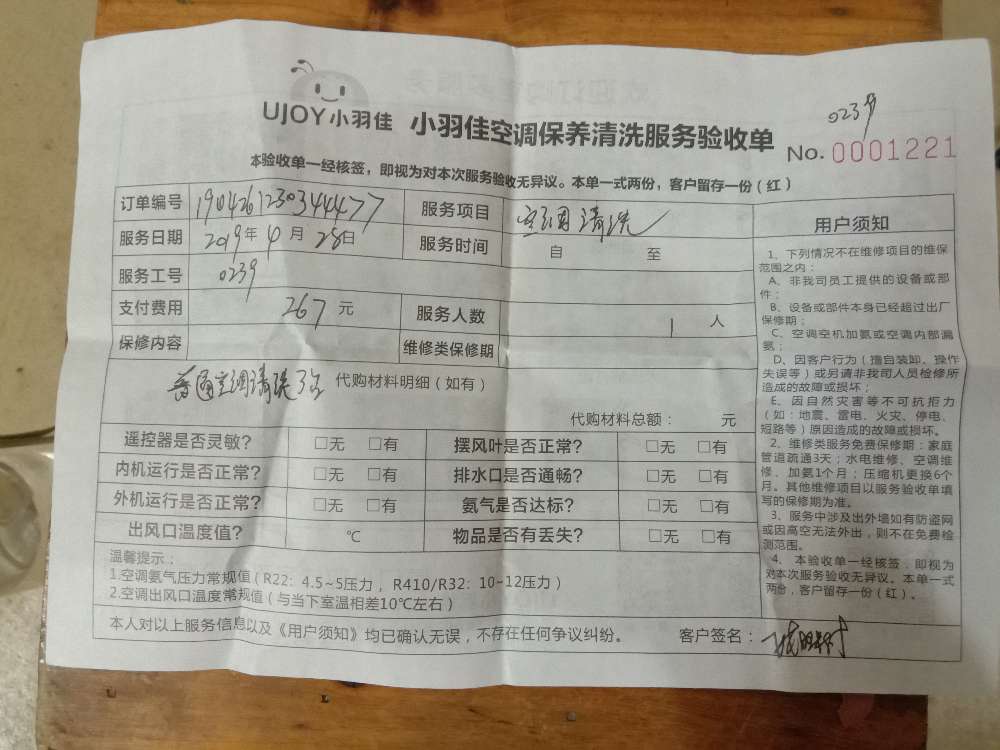 UJOY小羽佳 小羽佳空调保养清洗服务验收单
0239
No. 0001221
本验收单一经核签，即视为对本次服务验收无异议。本单一式两份，客户留存一份（红）
订单编号 1904261230344477 服务项目 空调清洗
服务日期 2019年 4 月 28日 服务时间 自 至
服务工号 0239
支付费用 267 元 服务人数 1 人
保修内容 维修类保修期
普通空调清洗 代购材料明细（如有）
代购材料总额： 元
遥控器是否灵敏? □无 □有 摆风叶是否正常? □无 □有
内机运行是否正常? □无 □有 排水口是否通畅? □无 □有
外机运行是否正常? □无 □有 氨气是否达标? □无 □有
出风口温度值? ℃ 物品是否有丢失? □无 □有
温馨提示：
1.空调氨气压力常规值（R22：4.5~5压力， R410/R32：10~12压力）
2.空调出风口温度常规值（与当下室温相差10℃左右）
本人对以上服务信息以及《用户须知》均已确认无误，不存在任何争议纠纷。 客户签名：
用户须知
1、下列情况不在维修项目的维保
范围之内：
A、非我司员工提供的设备或部
件；
B、设备或部件本身已经超过出厂
保修期；
C、空调空机加氨或空调内部漏
氨；
D、因客户行为（擅自装卸、操作
失误等）或另请非我司人员检修所
造成的故障或损坏；
E、因自然灾害等不可抗拒力
（如：地震、雷电、火灾、停电、
短路等）原因造成的故障或损坏。
2、维修类服务免费保修期：家庭
管道疏通3天；水电维修、空调维
修、加氨1个月；压缩机更换6个
月。其他维修项目以服务验收单填
写的保修期为准。
3、服务中涉及出外墙如有防盗网
或因高空无法外出，则不在免费检
测范围。
4、本验收单一经核签，即视为
对本次服务验收无异议。本单一式
两份，客户留存一份（红）。